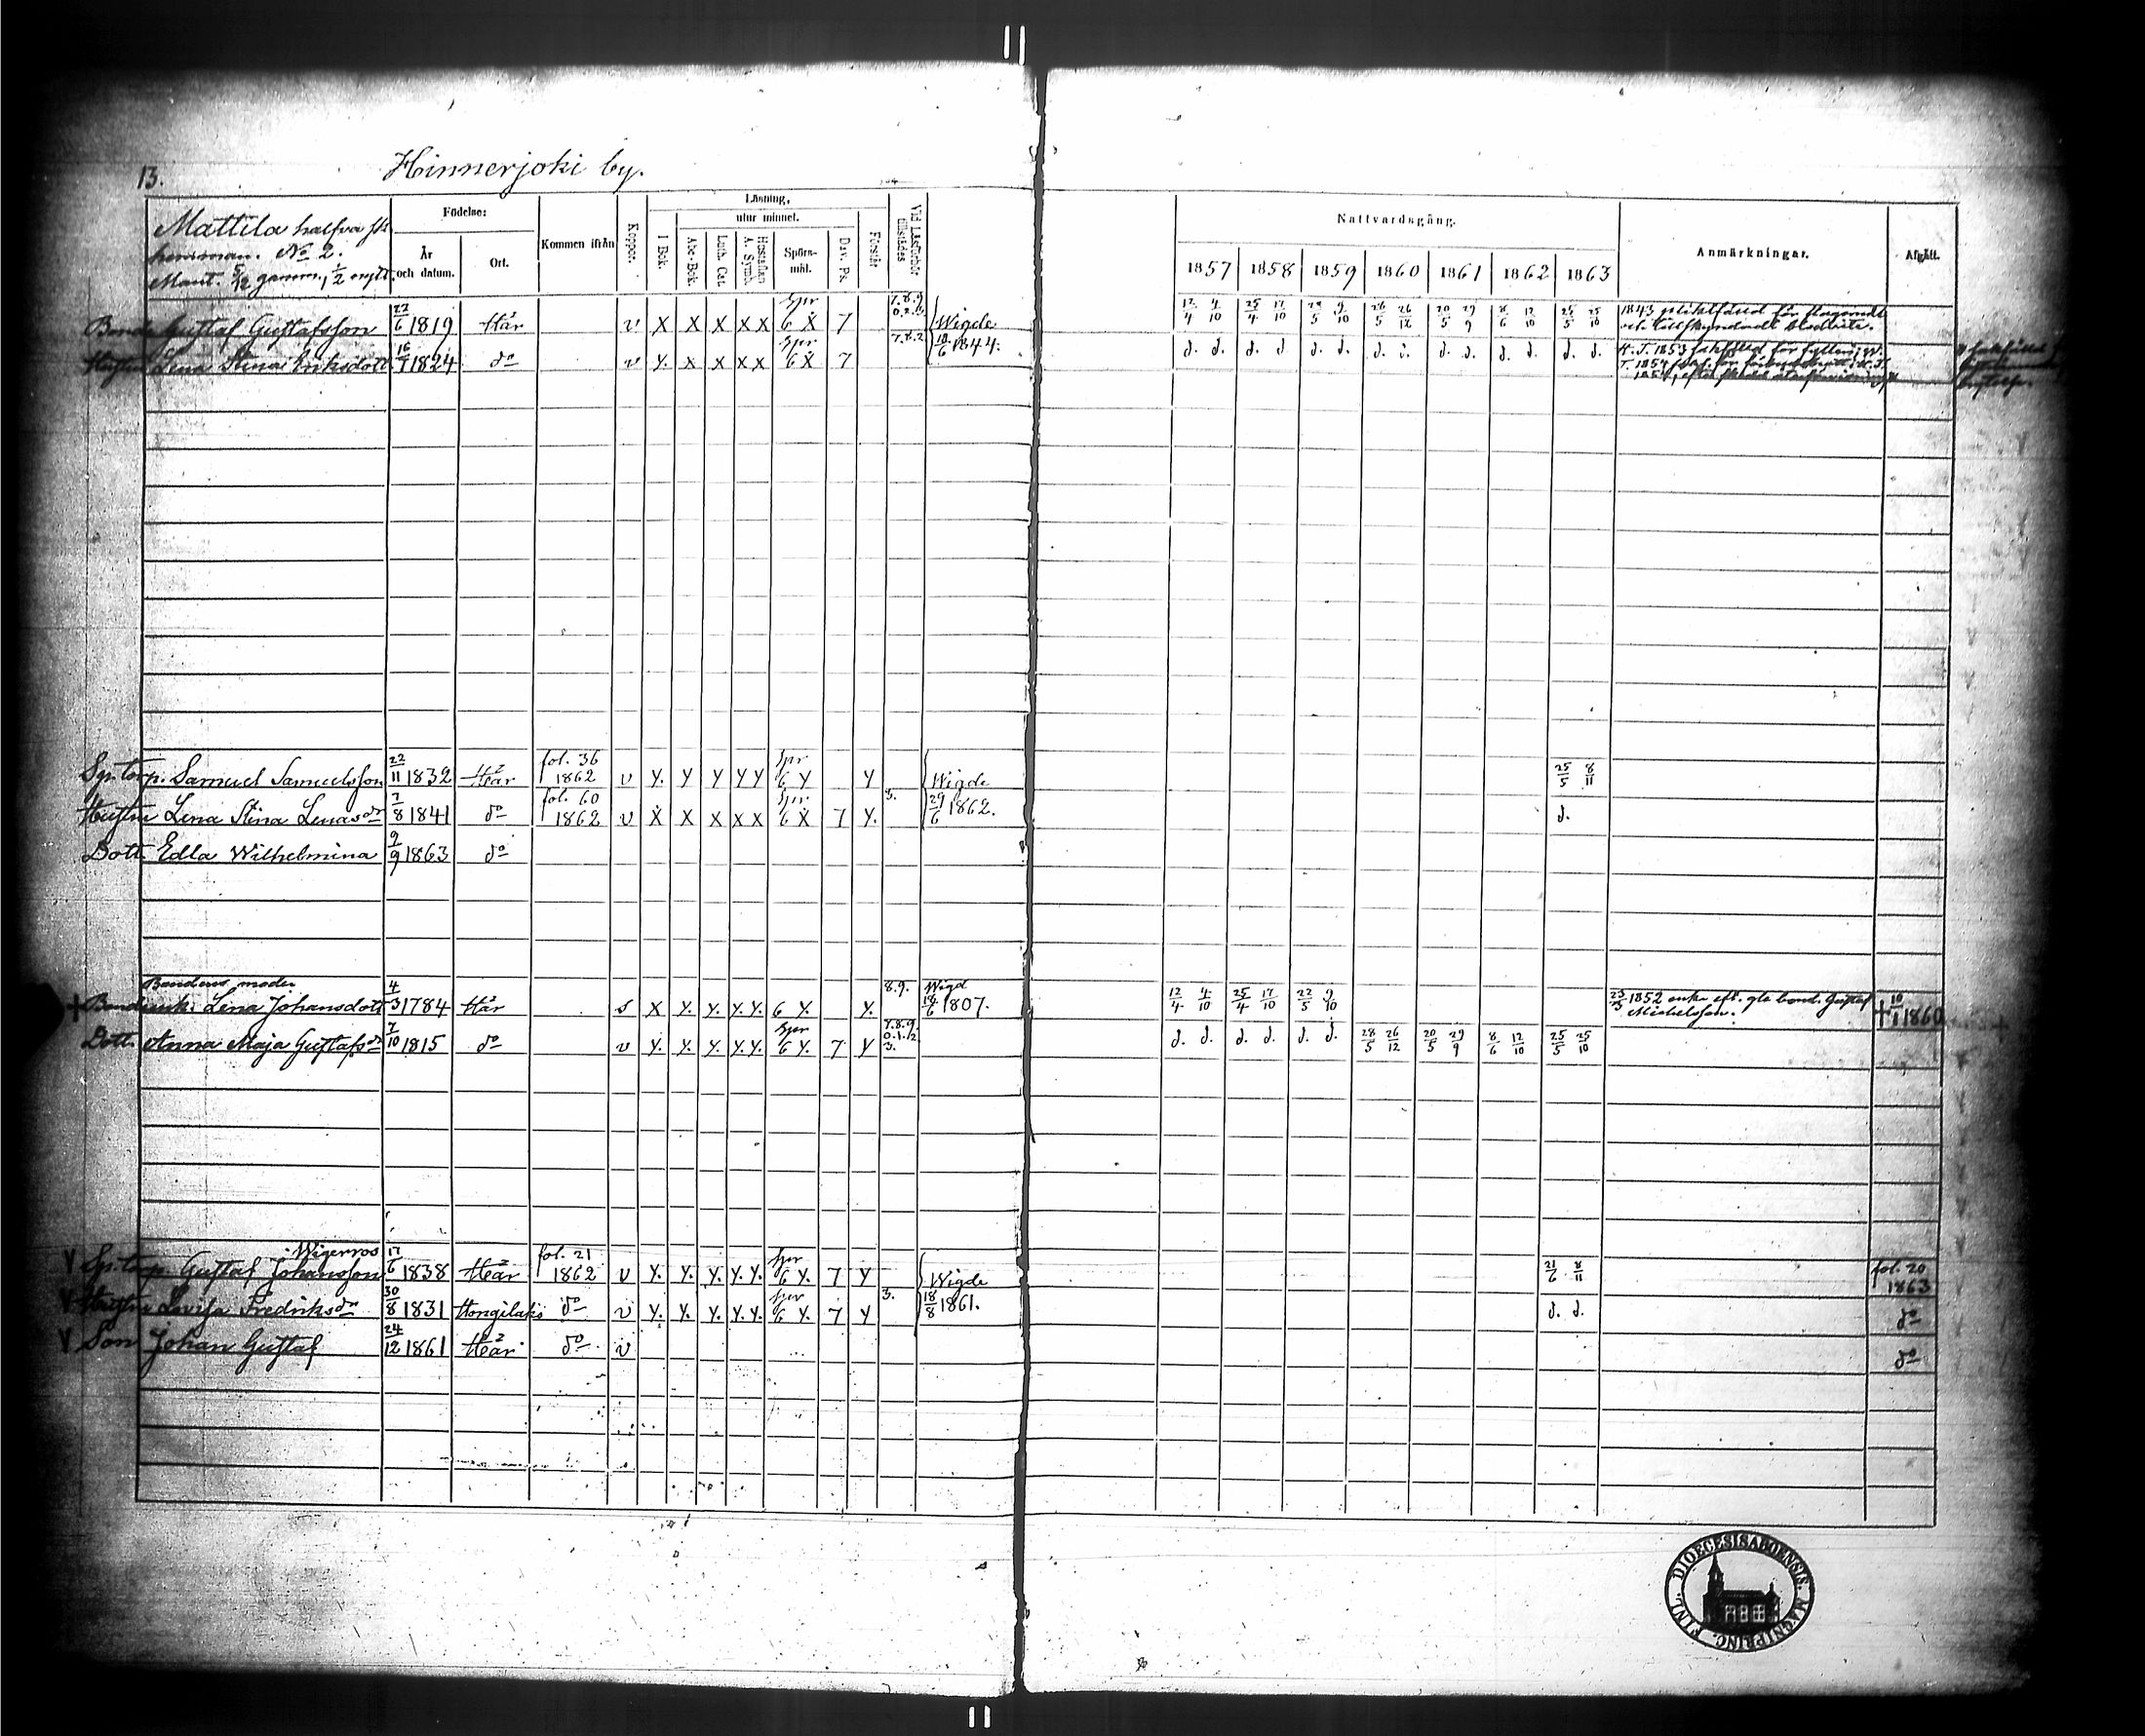 13.
Hinnerjoki by.
Mattila halfva
hemman. No 2.
Mant. 5/12 gamm., 1/2 nytt.
Födelse:
År och datum.
Ort.
Kommen ifrån
Koppor.
Läsning,
utur minnet.
I Bok.
Abc-Bok.
Luth. Cat.
Hustaflan
A. Symb.
Spörs-
mål.
Dav. Ps.
Förstår
Vid Läsförhör
tillstädes
Nattvardsgång.
1857 1858 1859 1860 1861 1862 1863
Anmärkningar.
Afgått.
Bonde Gustaf Gustafsson 22/6 1819 Här v X X X X X Spr 6 X 7 7.8.9. Wigde 12/4 4/10 25/4 17/10 22/5 9/10 28/5 26/12 20/5 29/9 8/6 12/10 25/5 25/10 1843
Hustru Lena Stina Eriksdott. 1824 do v Y. X X X X Spr 6 X 7 7.8.2. 1844. d. d. d. d d. d. d. d. d. d. d. d. d. d. H. T. 1853 sakfälld för fylleri;
Sp. torp. Samuel Samuelsson 22/11 1832 Här fol. 36 1862 v Y. Y Y Y Y Spr 6 Y Y Wigde 25/5 8/11
Hustru Lena Stina Lenasdr 7/8 1841 do fol. 60 1862 v X X X X X Spr 6 X 7 Y. 3. 29/6 1862. d.
Dott. Edla Wilhelmina 9/9 1863 do
Bondens moder
+ Bondenk. Lena Johansdott 4/3 1784 Här s X Y. Y. Y. Y. 6 Y. Y. 8.9. Wigd 18/6 1807. 12/4 4/10 25/4 17/10 22/5 9/10 23/3 1852 enka eft. gla bond. Gustaf + 10/1 1860
Michelsson.
Dott. Anna Maja Gustafsdr 7/10 1815 do v Y. Y. Y. Y. Y. Spr 6 Y. 7 Y 7.8.9. 0.1.2. 3. d. d. d. d. d. d. 28/5 26/12 20/5 29/9 8/6 12/10 25/5 25/10
Wigerros
V Sp. torp. Gustaf Johansson 17/6 1838 Här fol. 21 1862 v Y. Y. Y. Y. Y. Spr 6 Y. 7 Y Wigde 21/6 8/11 fol. 20 1863
V Hustru Lovisa Fredriksdr 30/8 1831 Hongilaks do v Y. Y. Y. Y. Y. Spr 6 Y. 7 Y 3. 18/8 1861. d. d. do
V Son Johan Gustaf 24/12 1861 Här do v do
DIOECESIS ABOENSIS. MAGNI PRINC. FINL.